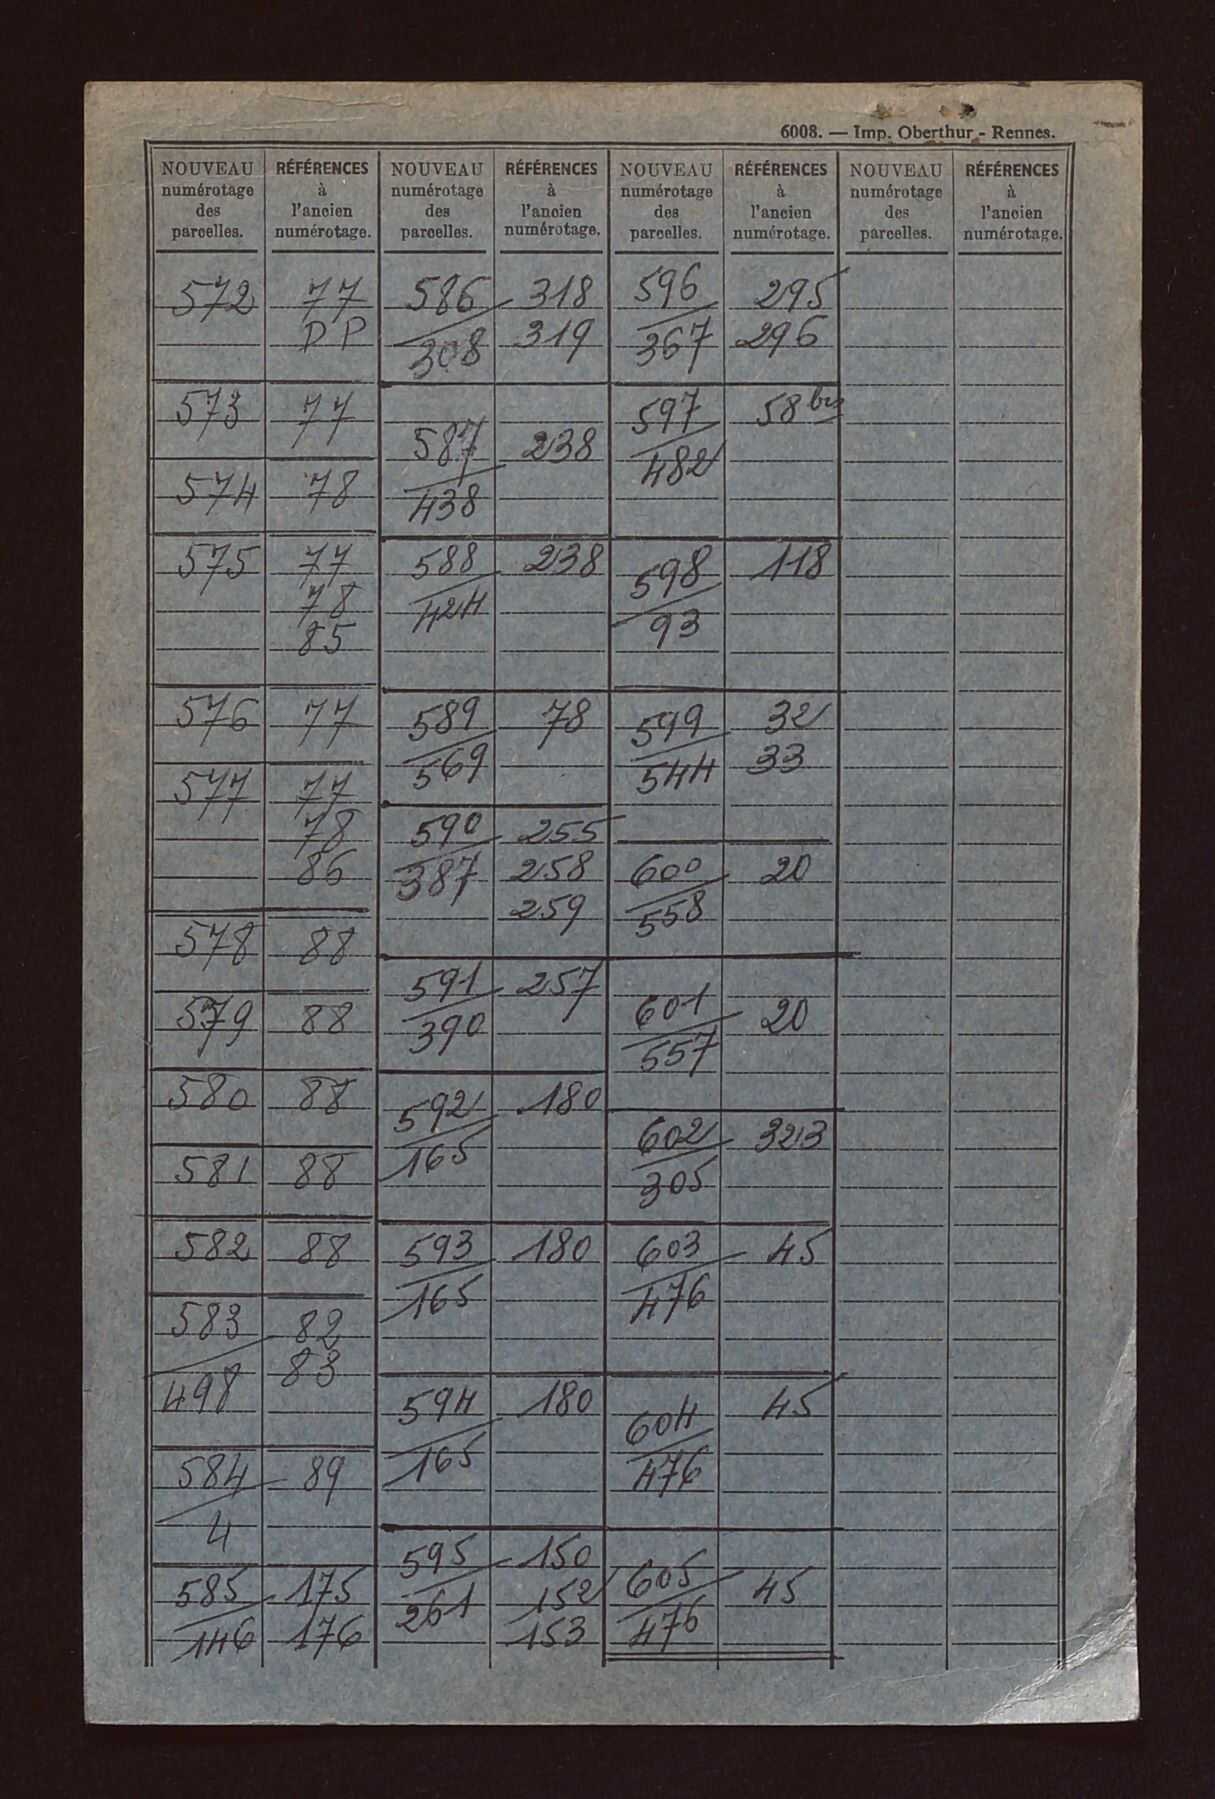 6008. — Imp. Oberthur - Rennes.
NOUVEAU numérotage des parcelles.
RÉFÉRENCES à l'ancien numérotage.
NOUVEAU numérotage des parcelles.
RÉFÉRENCES à l'ancien numérotage.
NOUVEAU numérotage des parcelles.
RÉFÉRENCES à l'ancien numérotage.
NOUVEAU numérotage des parcelles.
RÉFÉRENCES à l'ancien numérotage.
572 77
DP
573 77
574 78
575 77
78
85
576 77
577 77
78
86
578 88
579 88
580 88
581 88
582 88
583 82
83
498
584 89
4
585 175
146 176
586 318
308 319
587 238
438
588 238
424
589 78
569
590 255
387 258
259
591 257
390
592 180
165
593 180
165
594 180
165
595 150
261 152
153
596 295
367 296
597 58 bis
482
598 118
93
599 32
544 33
600 20
558
601 20
557
602 323
305
603 45
476
604 45
476
605 45
476